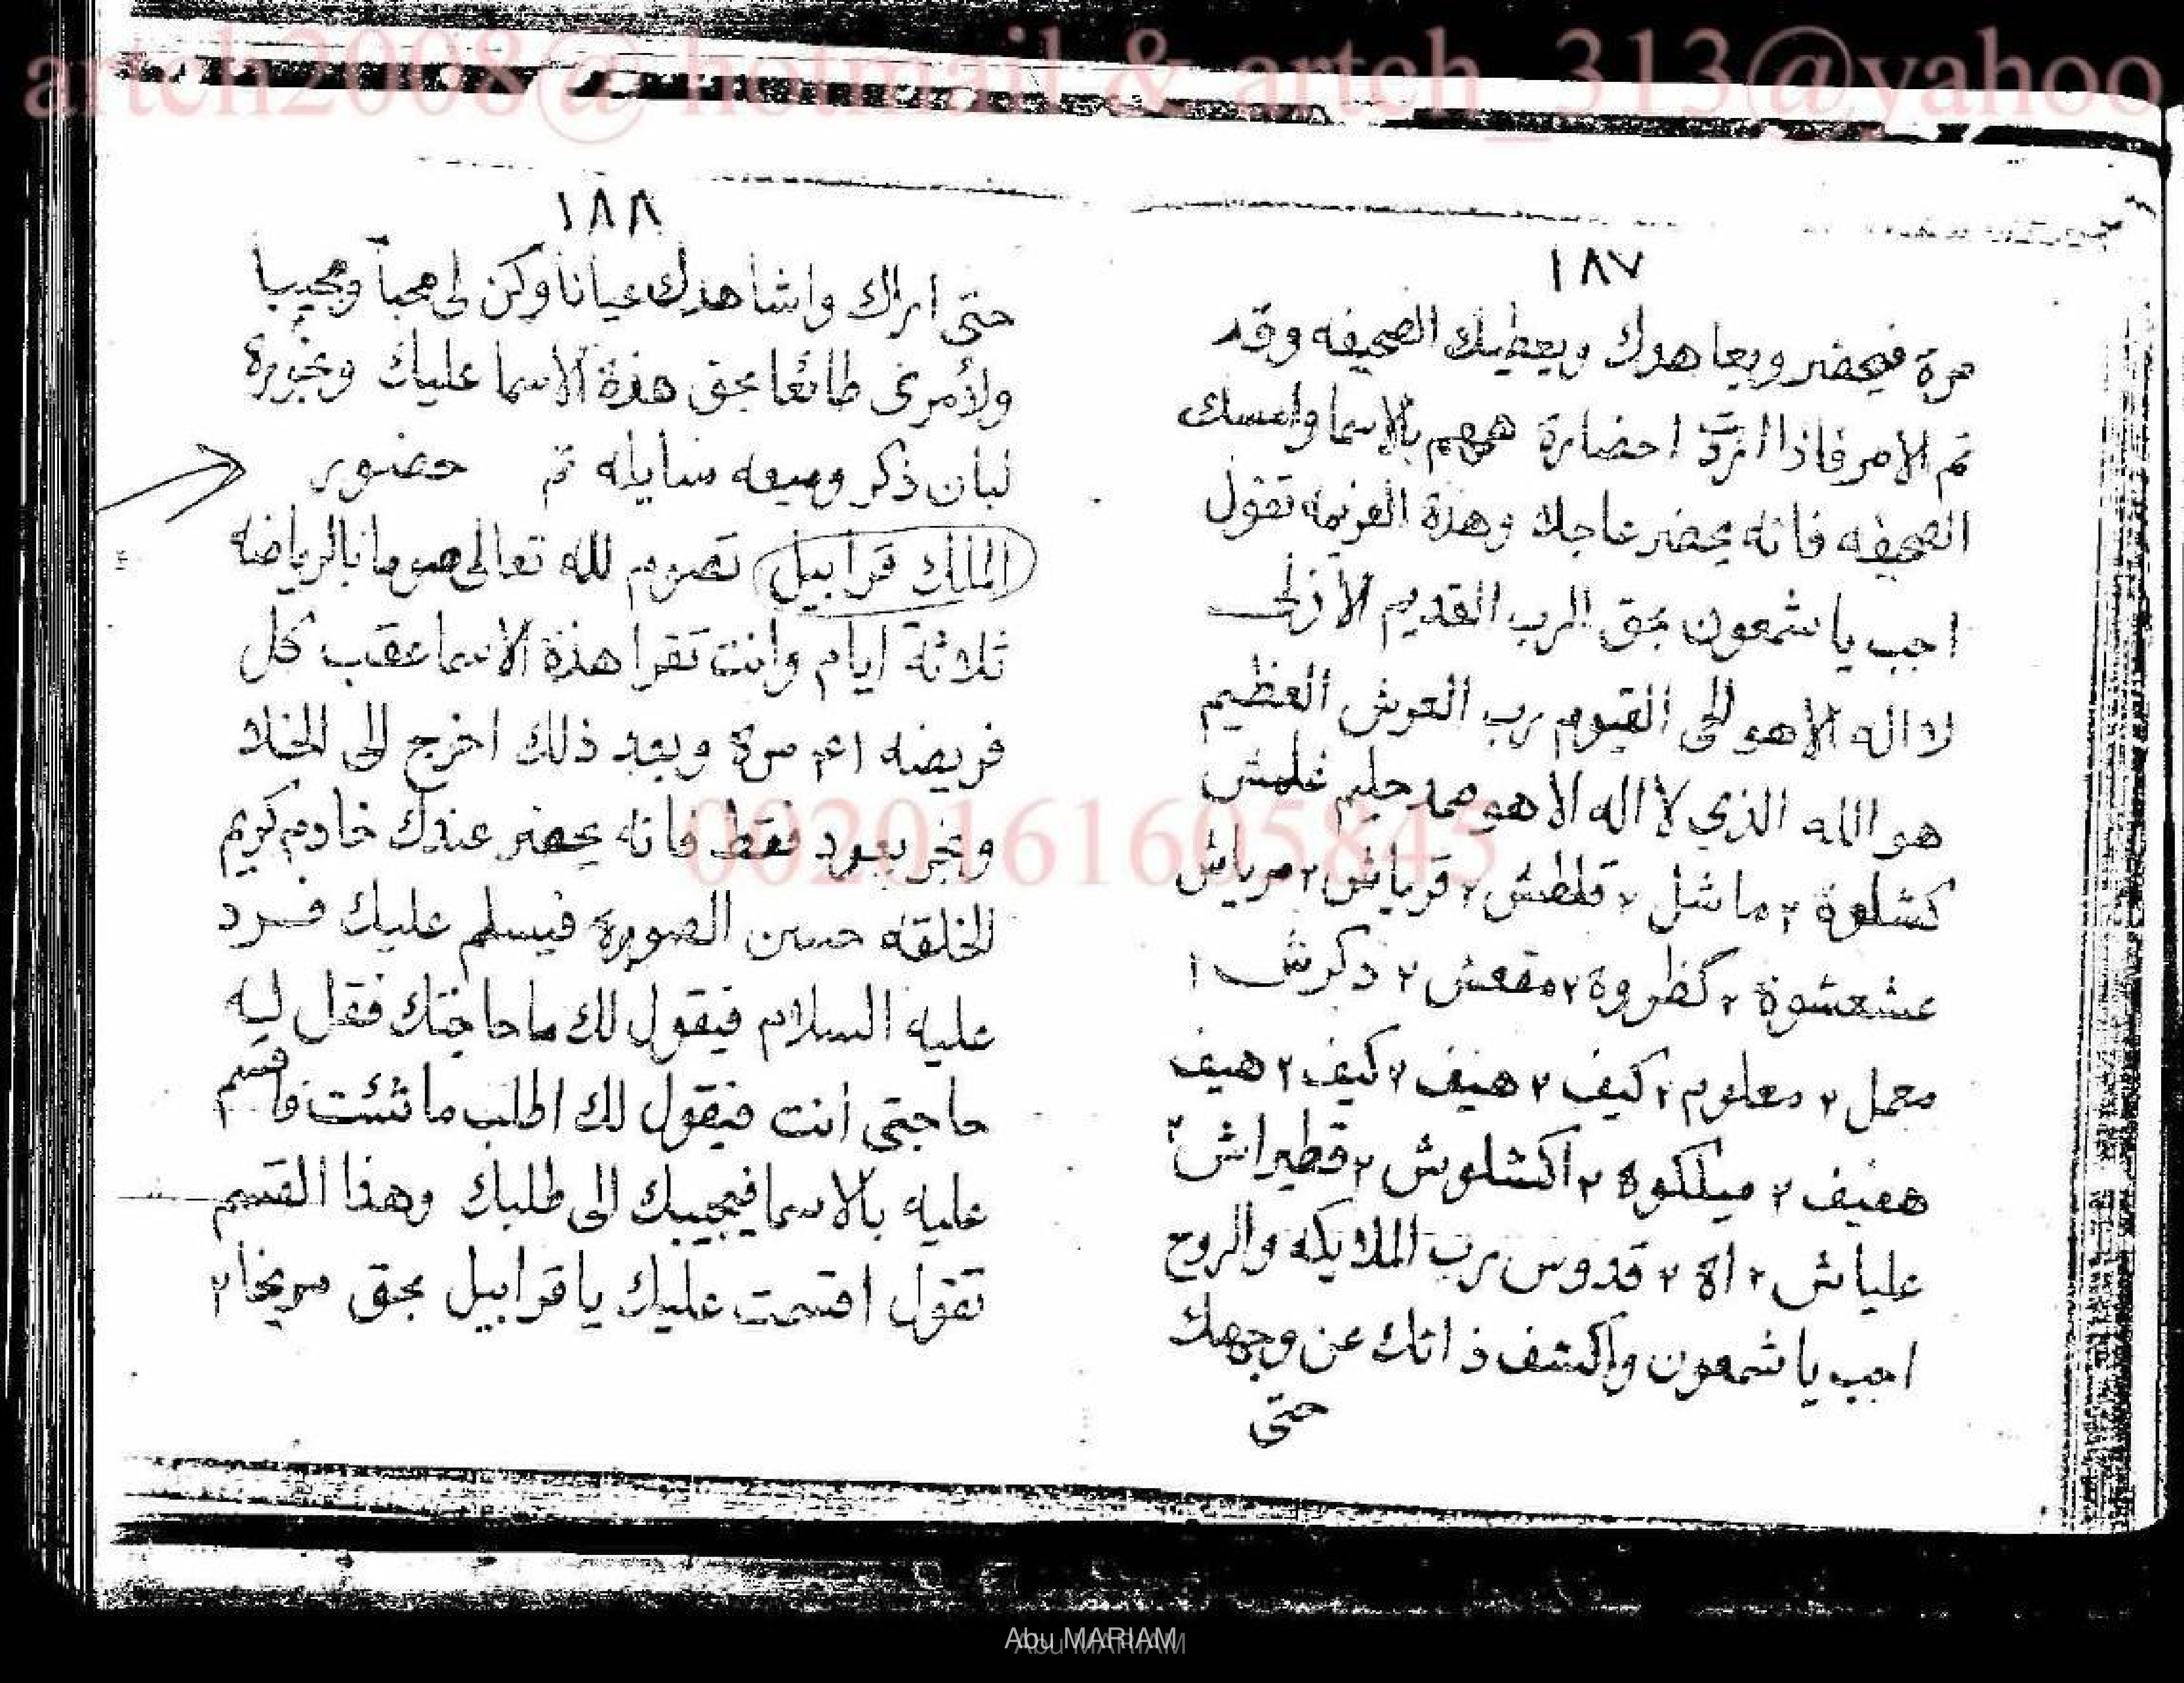 artch2008@ hotmail & artch_313@yahoo
١٨٧
مرة فيحضر ويعاهدك ويعطيك الصحيفه وقد
تم الامر فاذا اردت احضارة همهم بالاسما وامسك
الصحيفه فانه يحضر عاجلا وهذة العزيمه تقول
اجب يا شمعون بحق الرب القديم الأزلى
لا اله الا هو الحى القيوم رب العرش العظيم
هو الله الذي لا اله الا هو صمد حليم غلمش
كشلوة ٢ ماشل ٢ قلطش ٢ قرياش ٢ مرياش
عشعشوة ٢ كظروة ٢ مقعش ٢ دكرش ١
معمل ٢ معلوم ٢ كيف ٢ هنيف ٢ كيف ٢ هيف
هفيف ٢ ميلكوة ٢ اكشلوش ٢ قطيراش ٢
علياش ٢ اة ٢ قدوس رب الملايكه والروح
اجب يا شمعون واكشف ذاتك عن وجهك
حتى
١٨٨
حتى اراك واشاهدك عيانا وكن لى محبا ومجيبا
ولأمرى طائعا بحق هذة الاسما عليك وبخورة
لبان ذكر وميعه سايله تم حضور
الملك قرابيل تصوم لله تعالى صوما بالرياضه
ثلاثة ايام وانت تقرا هذة الاسما عقب كل
فريضه ٤١ مرة وبعد ذلك اخرج الى الخلا
وبخر بعود فقط فانه يحضر عندك خادم كريم
الخلقه حسن الصورة فيسلم عليك فرد
عليه السلام فيقول لك ما حاجتك فقل ليه
حاجتى انت فيقول لك اطلب ما شئت فاقسم
عليه بالاسما فيجيبك الى طلبك وهذا القسم
تقول اقسمت عليك يا قرابيل بحق مريخا ٢
0020161605845
Abu MARIAM